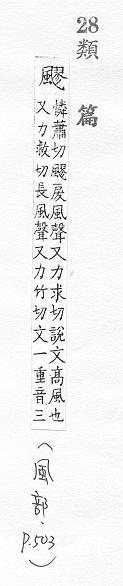 28
類篇
飂
憐蕭切飂戾風聲又力求切說文高風也
又力救切長風聲又力竹切文一重音三
(風部、
p.503)